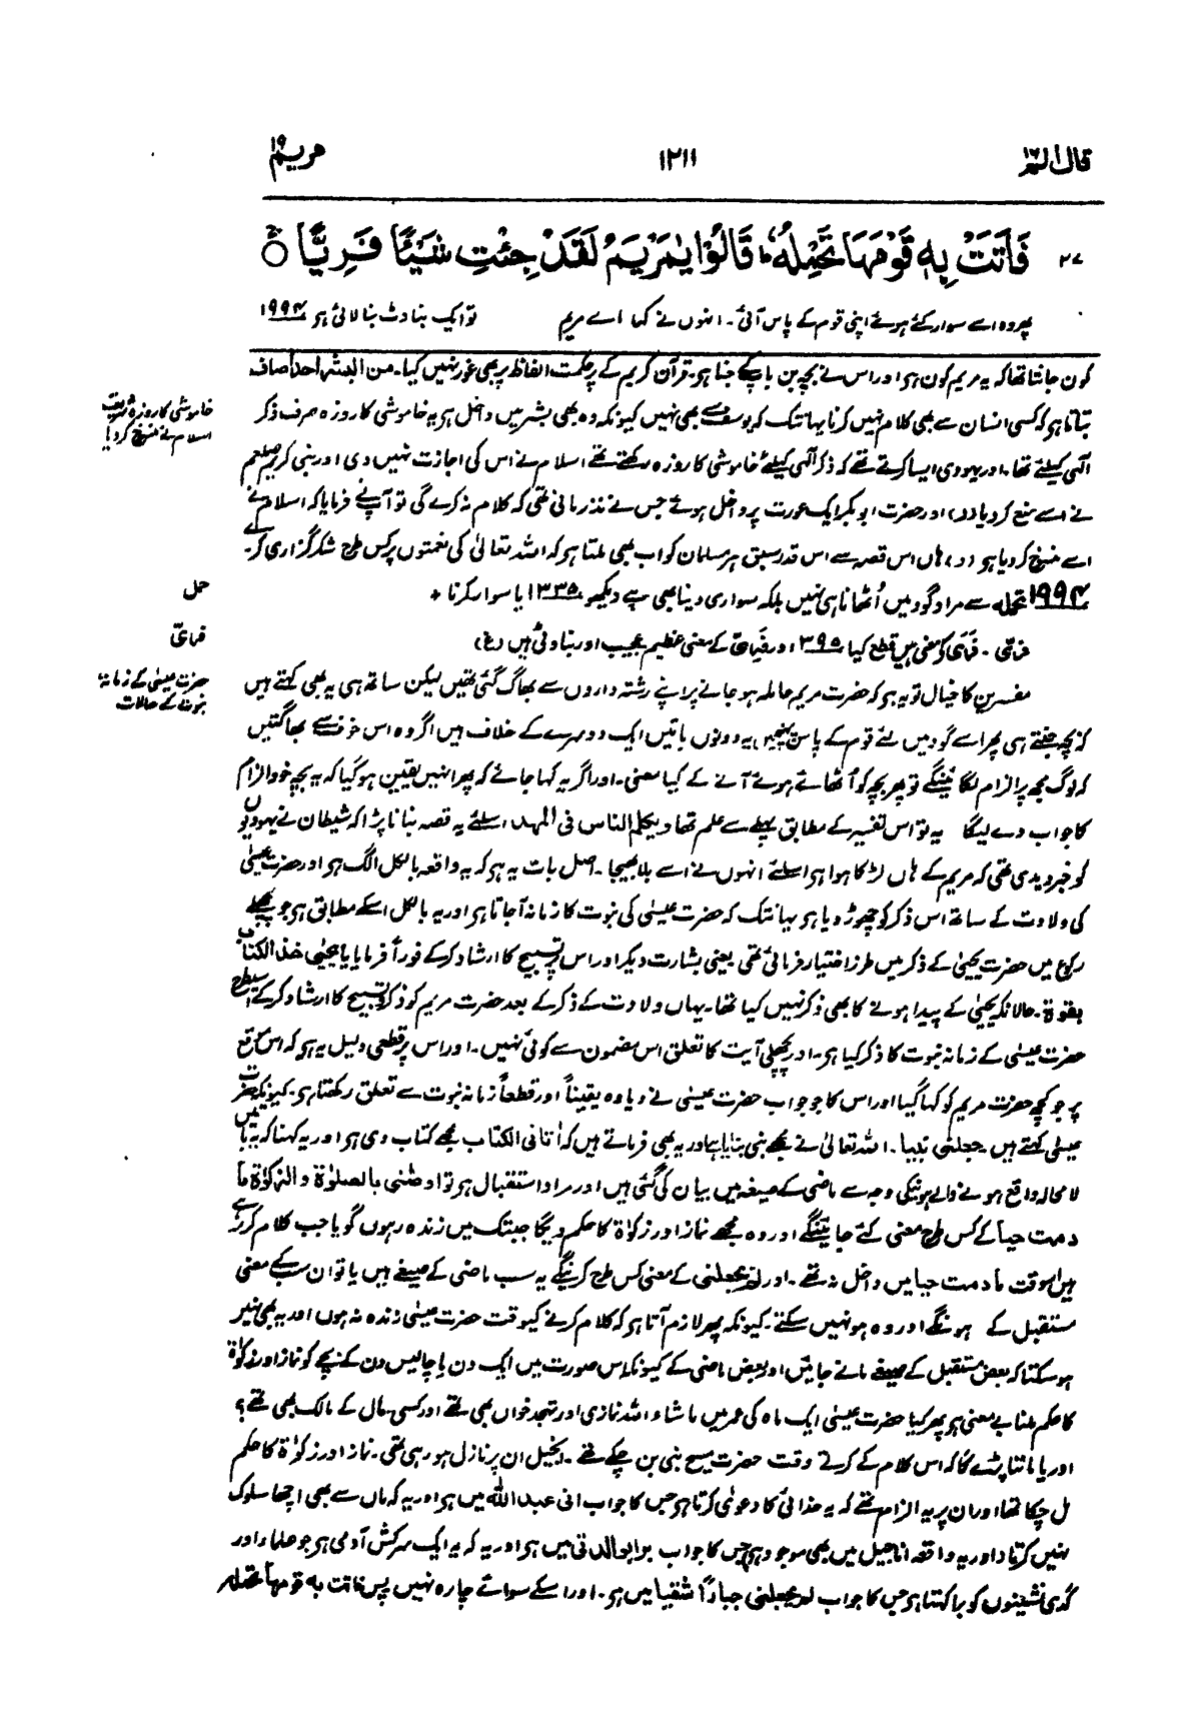 قال الم ۱۶
۱۲۱۱
مریم ۱۹
۲۷ فَاَتَتْ بِهٖ قَوْمَهَا تَحْمِلُهٗ ؕ قَالُوْا یٰمَرْیَمُ لَقَدْ جِئْتِ شَیْئًا فَرِیًّا ۝
پھر وہ اسے سوار کئے ہوئے اپنی قوم کے پاس آئی۔ انہوں نے کہا اے مریم تو ایک بناوٹ بنا لائی ہو ۱۹۹۴
کون جانتا تھا کہ یہ مریم کون ہو اور اس نے بچہ بن باپ کے جنا ہو۔ قرآن کریم کے پرحکمت الفاظ پر بھی غور نہیں کیا۔ من البشر احداً صاف
بتاتا ہو کہ کسی انسان سے بھی کلام نہیں کرنا یہانتک کہ یوسف سے بھی نہیں کیونکہ وہ بھی بشر میں داخل ہو یہ خاموشی کا روزہ صرف ذکر
الٰہی کیلئے تھا۔ اور یہودی ایسا کرتے تھے کہ ذکر الٰہی کیلئے خاموشی کا روزہ رکھتے تھے اسلام نے اس کی اجازت نہیں دی اور نبی کریم صلعم
نے اسے منع کر دیا (د) اور حضرت ابوبکر ایک عورت پر داخل ہوئے جس نے نذر مانی تھی کہ کلام نہ کرے گی تو آپ نے فرمایا کہ اسلام نے
اسے منسوخ کر دیا ہو (د) ہاں اس قصہ سے اس قدر سبق ہر مسلمان کو اب بھی ملتا ہو کہ اللہ تعالیٰ کی نعمتوں پر کس طرح شکر گزاری کرے۔
۱۹۹۴ تحملہ سے مراد گود میں اُٹھانا ہی نہیں بلکہ سواری دینا بھی ہے دیکھو ۱۳۳۵ یا سوار کرنا ٭
فریّ۔ فَرَی کے معنی ہیں قطع کیا ۳۹۵ اور فَرِیّ کے معنی عظیم عجیب اور بناوٹی ہیں (غ)
مفسرین کا خیال تو یہ ہو کہ حضرت مریم حاملہ ہو جانے پر اپنے رشتہ داروں سے بھاگ گئی تھیں لیکن ساتھ ہی یہ بھی کہتے ہیں
کہ بچہ جنتے ہی پھر اسے گود میں لئے قوم کے پاس پہنچیں یہ دونوں باتیں ایک دوسرے کے خلاف ہیں اگر وہ اس خوف سے بھاگتیں
کہ لوگ مجھ پر الزام لگائینگے تو پھر بچہ کو اُٹھائے ہوئے آنے کے کیا معنی۔ اور اگر یہ کہا جائے کہ پھر انہیں یقین ہو گیا کہ یہ بچہ خود الزام
کا جواب دے لیگا یہ تو اس تفسیر کے مطابق پہلے سے علم تھا ویکلم الناس فی المھد اسلئے یہ قصہ بنانا پڑا کہ شیطان نے یہودیوں
کو خبر دیدی تھی کہ مریم کے ہاں لڑکا ہوا ہو اسلئے انہوں نے اسے بلا بھیجا۔ اصل بات یہ ہو کہ یہ واقعہ بالکل الگ ہو اور حضرت عیسیٰ
کی ولادت کے ساتھ اس ذکر کو چھوڑ دیا ہو یہانتک کہ حضرت عیسیٰ کی نبوت کا زمانہ آجاتا ہو اور یہ بالکل اسکے مطابق ہو جو پچھلے
رکوع میں حضرت یحییٰ کے ذکر میں طرز اختیار فرمائی تھی یعنی بشارت دیکر اور اس پر تسبیح کا ارشاد کرکے فوراً فرمایا یٰیحییٰ خذ الکتاب
بقوۃ۔ حالانکہ یحییٰ کے پیدا ہونے کا بھی ذکر نہیں کیا تھا۔ یہاں ولادت کے ذکر کے بعد حضرت مریم کو ذکر و تسبیح کا ارشاد کرکے اسیطرح
حضرت عیسیٰ کے زمانہ نبوت کا ذکر کیا ہو۔ اور پچھلی آیت کا تعلق اس مضمون سے کوئی نہیں۔ اور اس پر قطعی دلیل یہ ہو کہ اس موقع
پر جو کچھ حضرت مریم کو کہا گیا اور اس کا جو جواب حضرت عیسیٰ نے دیا وہ یقیناً اور قطعاً زمانہ نبوت سے تعلق رکھتا ہو۔ کیونکہ حضرت
عیسیٰ کہتے ہیں جعلنی نبیا۔ اللہ تعالیٰ نے مجھے نبی بنایا ہے اور یہ بھی فرماتے ہیں کہ اٰتانی الکتاب مجھے کتاب دی ہو اور یہ کہنا کہ یہ باتیں
لامحالہ واقع ہونے والے ہونیکی وجہ سے ماضی کے صیغہ میں بیان کی گئی ہیں اور مراد استقبال ہو تو اوصٰنی بالصلوٰۃ والزکوٰۃ ما
دمت حیاً کے کس طرح معنی کئے جائینگے اور وہ مجھے نماز اور زکوٰۃ کا حکم دیگا جبتک میں زندہ رہوں گویا جب کلام کر رہے
ہیں اسوقت مادمت حیا میں داخل نہ تھے۔ اور لم یجعلنی کے معنی کس طرح کرینگے یہ سب ماضی کے صیغے ہیں یا تو ان سب کے معنی
مستقبل کے ہونگے اور وہ ہو نہیں سکتے۔ کیونکہ پھر لازم آتا ہو کہ کلام کرنے کیوقت حضرت عیسیٰ زندہ نہ ہوں اور یہ بھی نہیں
ہو سکتا کہ بعض مستقبل کے صیغے مانے جائیں اور بعض ماضی کے کیونکہ اس صورت میں ایک دن یا چالیس دن کے بچے کو نماز اور زکوٰۃ
کا حکم ملنا بے معنی ہو پھر کیا حضرت عیسیٰ ایک ماہ کی عمر میں ماشاء اللہ نمازی اور تہجد خواں بھی تھے اور کسی مال کے مالک بھی تھے؟
اور یا ماننا پڑے گا کہ اس کلام کے کرتے وقت حضرت مسیح نبی بن چکے تھے۔ انجیل ان پر نازل ہو رہی تھی۔ نماز اور زکوٰۃ کا حکم
مل چکا تھا اور ان پر یہ الزام تھے کہ یہ خدائی کا دعویٰ کرتا ہو جس کا جواب انی عبداللہ میں ہو اور یہ کہ ماں سے بھی اچھا سلوک
نہیں کرتا (اور یہ واقعہ اناجیل میں بھی موجود ہی) جس کا جواب برا بوالدتی میں ہو اور یہ کہ یہ ایک سرکش آدمی ہو جو علماء اور
گدی نشینوں کو برا کہتا ہو جس کا جواب لم یجعلنی جباراً شقیا میں ہو۔ اور اسکے سوائے چارہ نہیں پس فاتت بہ قومھا تحملہ
خاموشی کا روزہ شریعت
اسلام نے منسوخ کر دیا
حمل
فریّ
حضرت عیسیٰ کے زمانہ
نبوت کے حالات